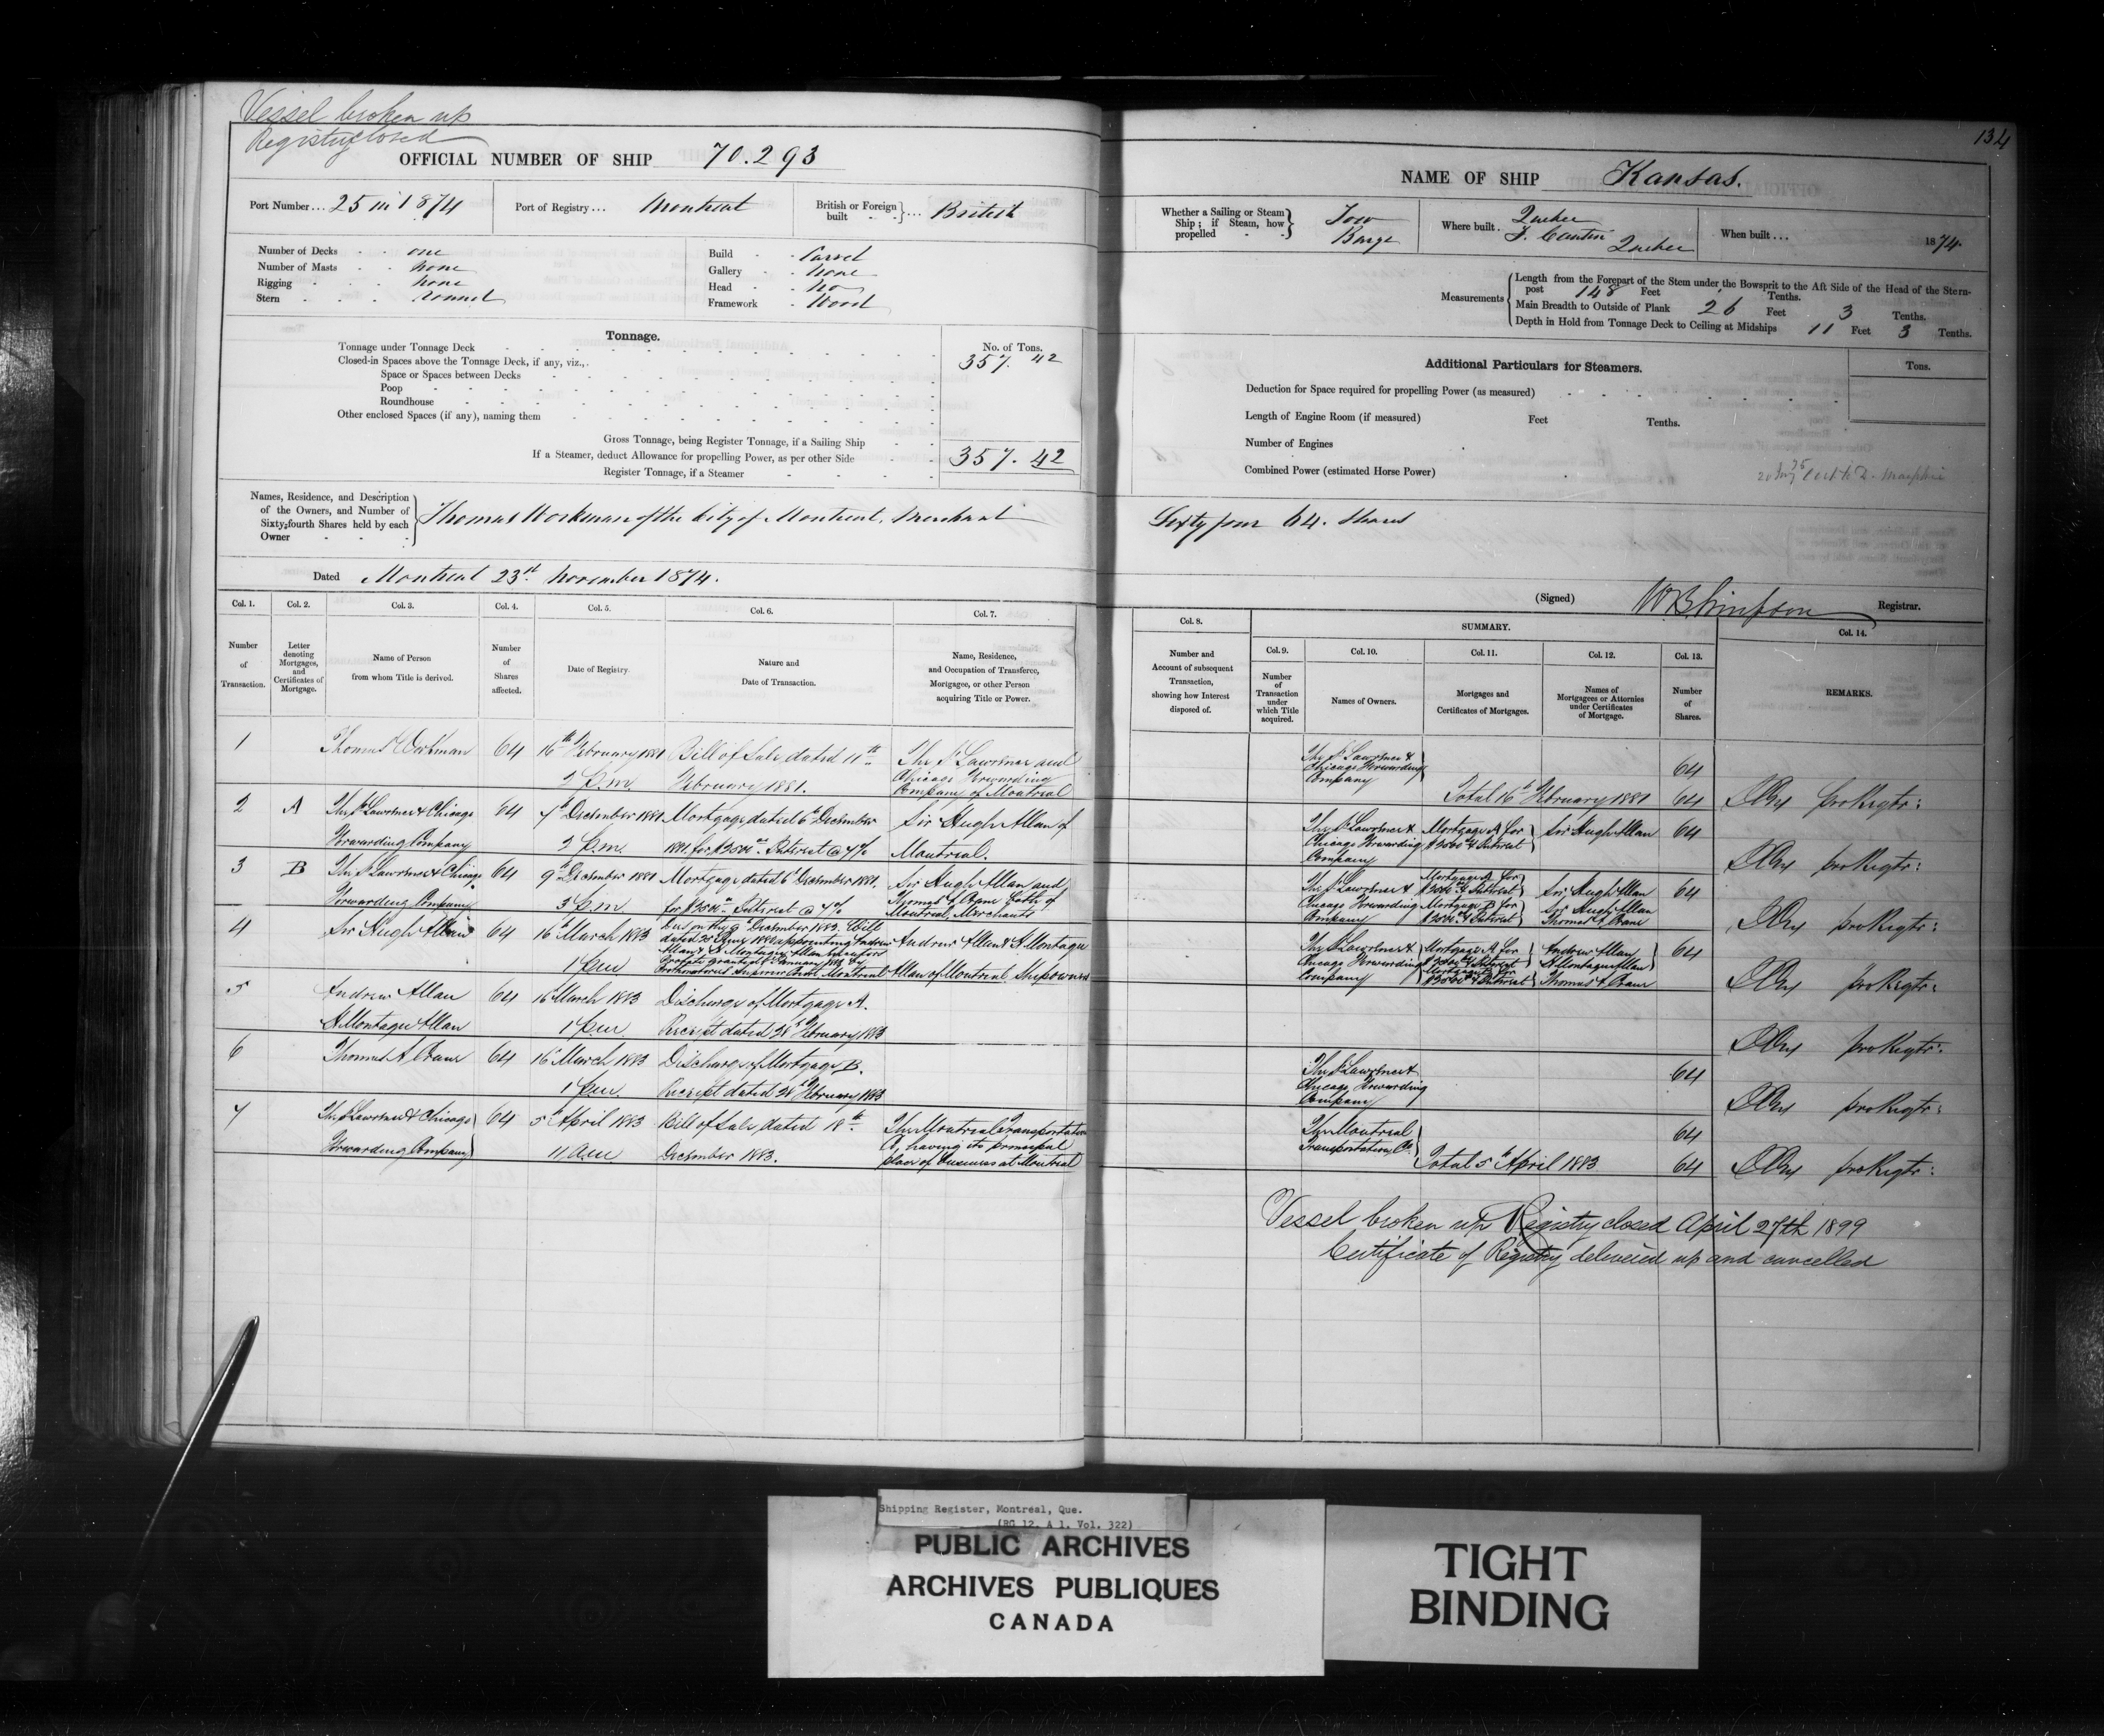 Vessel broken up
Registry closed
OFFICIAL NUMBER OF SHIP 70.293
Port Number... 25 in 1874
Port of Registry... Montreal
British or Foreign built } ... British
Number of Decks one
Number of Masts none
Rigging none
Stern round
Build Carvel
Gallery None
Head No
Framework Wood
Tonnage.
No. of Tons.
Tonnage under Tonnage Deck 357. 42
Closed-in Spaces above the Tonnage Deck, if any, viz.,
Space or Spaces between Decks
Poop
Roundhouse
Other enclosed Spaces (if any), naming them
Gross Tonnage, being Register Tonnage, if a Sailing Ship
If a Steamer, deduct Allowance for propelling Power, as per other Side 357. 42
Register Tonnage, if a Steamer
Names, Residence, and Description
of the Owners, and Number of
Sixty-fourth Shares held by each
Owner
Thomas Workman of the City of Montreal, Merchant
Dated Montreal 23rd November 1874.
Col. 1. Col. 2. Col. 3. Col. 4. Col. 5. Col. 6. Col. 7.
Number of Transaction.
Letter denoting Mortgages, and Certificates of Mortgage.
Name of Person from whom Title is derived.
Number of Shares affected.
Date of Registry.
Nature and Date of Transaction.
Name, Residence, and Occupation of Transferee, Mortgagee, or other Person acquiring Title or Power.
1 Thomas Workman 64 16th February 1881 Bill of Sale dated 11th The St Lawrence and
2 P.m. February 1881. Chicago Forwarding
Company of Montreal
2 A The St Lawrence & Chicago 64 7th December 1881 Mortgage dated 6th December Sir Hugh Allan of
Forwarding Company 2 P.m. 1881 for Interest @ 7% Montreal.
3 B The St Lawrence & Chicago 64 9th December 1881 Mortgage dated 6th December 1881. Sir Hugh Allan and
Forwarding Company 3 P.m. for Interest @ 7% Thomas A Crane both of
Montreal, Merchants
4 Sir Hugh Allan 64 16th March 1883 9th December 1882. Will
dated appointing Andrew
Allan & H Montagu Allan executors
Probate granted January 1883 by
Prothonotaries Superior Court Montreal
1 P.m. Andrew Allan & H Montagu
Allan of Montreal, Shipowners
5 Andrew Allan 64 16 March 1883 Discharge of Mortgage A.
H Montagu Allan 1 P.m. Receipt dated 28th February 1883
6 Thomas A Crane 64 16 March 1883 Discharge of Mortgage B.
1 P.m. Receipt dated 28th February 1883
7 The St Lawrence & Chicago 64 5th April 1883 Bill of Sale dated 18th The Montreal Transportation
Forwarding Company 11 A.m. December 1883. Co, having its principal
place of business at Montreal
134
NAME OF SHIP Kansas.
Whether a Sailing or Steam Ship; if Steam, how propelled } Tow Barge
Where built. Quebec
J. Cantin Quebec
When built ... 1874.
Measurements
Length from the Forepart of the Stem under the Bowsprit to the Aft Side of the Head of the Stern-
post 148 Feet Tenths.
Main Breadth to Outside of Plank 26 Feet 3 Tenths.
Depth in Hold from Tonnage Deck to Ceiling at Midships 11 Feet 3 Tenths.
Additional Particulars for Steamers.
Tons.
Deduction for Space required for propelling Power (as measured)
Length of Engine Room (if measured) Feet Tenths.
Number of Engines
Combined Power (estimated Horse Power)
Sixty four 64. Shares
(Signed) W B Simpson Registrar.
Col. 8. SUMMARY. Col. 14.
Col. 9. Col. 10. Col. 11. Col. 12. Col. 13.
Number and Account of subsequent Transaction, showing how Interest disposed of.
Number of Transaction under which Title acquired.
Names of Owners.
Mortgages and Certificates of Mortgages.
Names of Mortgagees or Attornies under Certificates of Mortgage.
Number of Shares.
REMARKS.
The St Lawrence &
Chicago Forwarding
Company 64
Total 16th February 1881 64 pro Regtr:
The St Lawrence & Mortgage A for Sir Hugh Allan 64
Chicago Forwarding & Interest
Company pro Regtr:
The St Lawrence & Mortgage A for & Interest Sir Hugh Allan 64
Chicago Forwarding Mortgage B for Sir Hugh Allan
Company & Interest Thomas A Crane pro Regtr:
The St Lawrence & Mortgage A for Andrew Allan 64
Chicago Forwarding & Interest H Montagu Allan
Company Mortgage B for & Interest Thomas A Crane pro Regtr:
pro Regtr:
The St Lawrence & 64
Chicago Forwarding
Company pro Regtr:
The Montreal 64
Transportation Co.
Total 5th April 1883 64 pro Regtr:
Vessel broken up Registry closed April 27th 1899
Certificate of Registry delivered up and cancelled
Shipping Register, Montreal, Que.
(RG 12, A 1, Vol. 322)
PUBLIC ARCHIVES
ARCHIVES PUBLIQUES
CANADA
TIGHT
BINDING